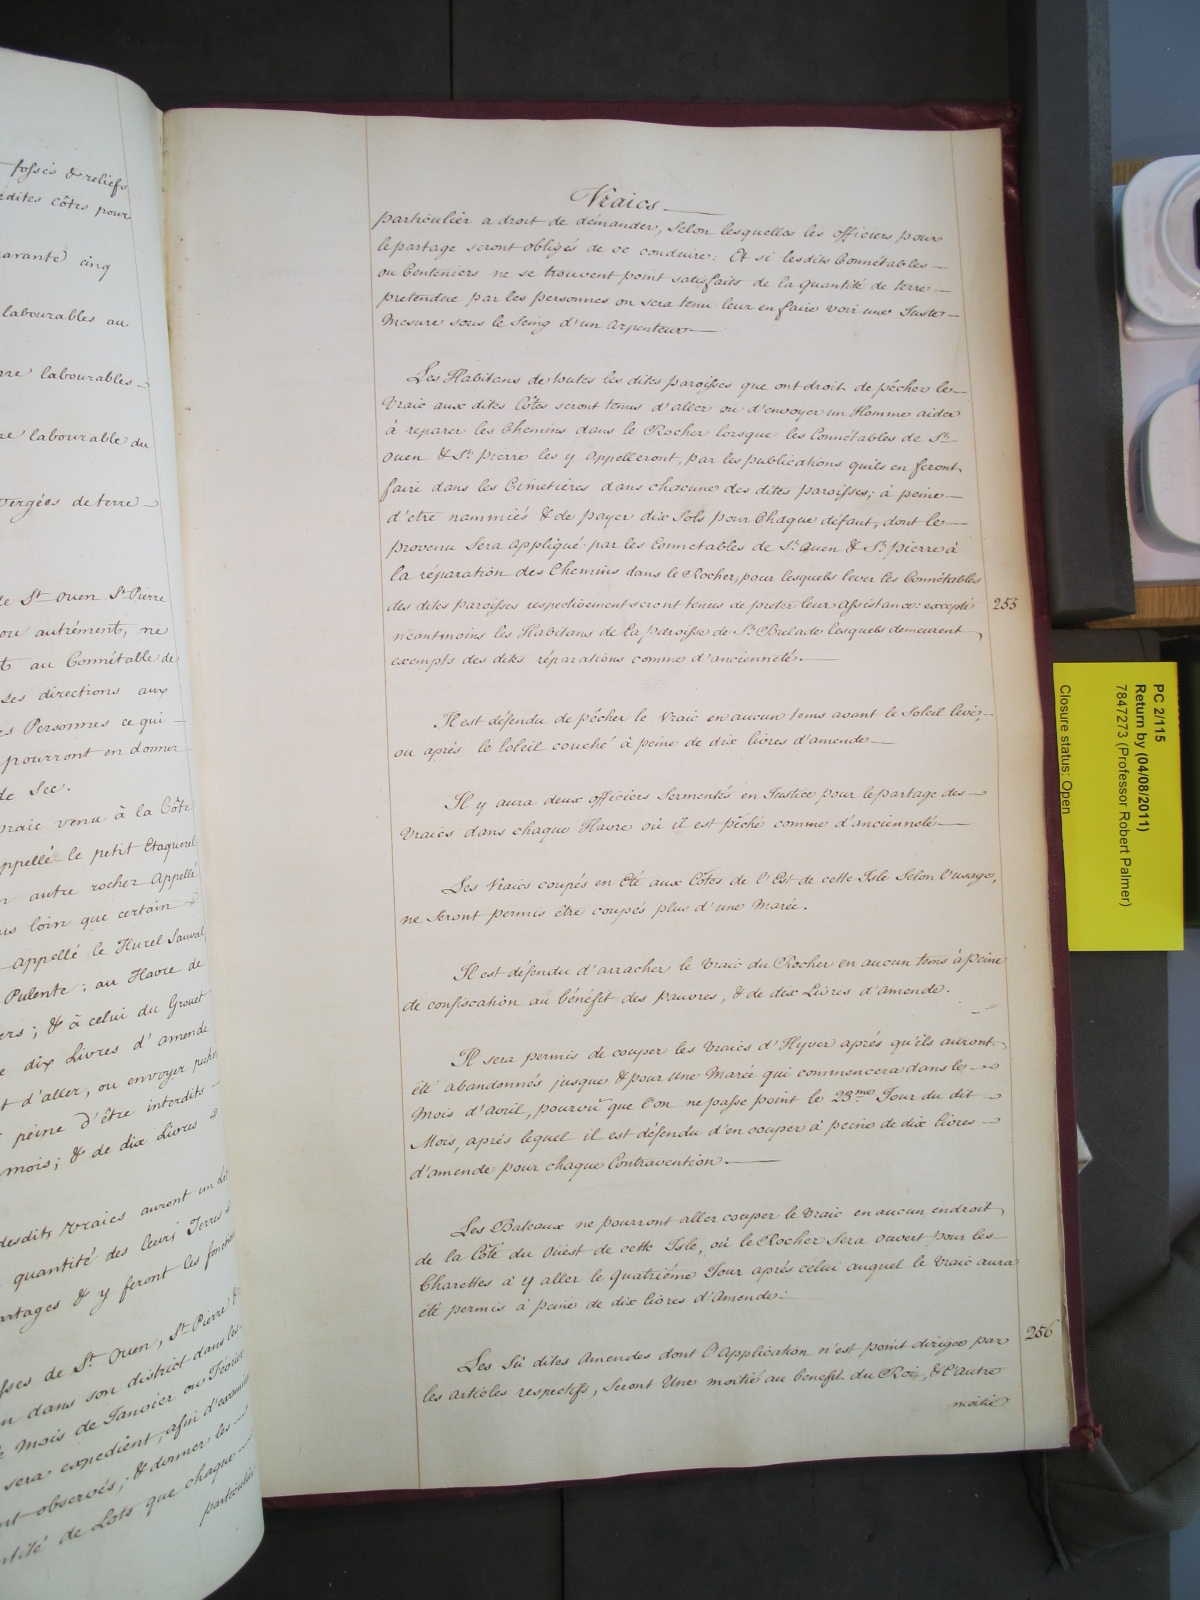 fossés & reliefs
dites côtes pour
cinq
labourables au
labourables
labourable du
vergées de terre
de St. Ouen St. Pierre
ou autrément, ne
au Connétable de
ses directions aux
Personnes ce qui
pourront en donner
de Sec.
vraic venu à la Côte
appellé le petit Etaquerel
autre rocher Appellé
loin que certain
appellé le Hurel Sauval
Pulente; au Havre de
& à celui du Grouet
dix Livres d'amende
d'aller, ou envoyer pecher
peine d'être interdits
mois; & de dix Livres
desdits Vraics auront un
quantité des leurs Terres
partages & y feront les
de St. Ouen, St. Pierre &
dans son district dans les
Mois de Janvier ou Février
sera expedient, afin d'examiner
observés; & donner les
de Lots que chaque
particulier
Vraics
particulier a droit de démander, Selon lesquelles les officiers pour
le partage seront obligés de ce conduire: Et si lesdits Connétables
ou Centeniers ne se trouvent point satisfaits de la quantité de terre
pretendue par les personnes on sera tenu leur en faire voir une Juste
Mesure sous le Seing d'un arpenteur
Les Habitans de toutes les dites paroisses que ont droit de pécher le
Vraic aux dites Côtes seront tenus d'aller ou d'envoyer un Homme aider
à reparer les Chemins dans le Rocher lorsque les Connétables de St.
Ouen & St. Pierre les y Appelleront, par les publications qu'ils en feront
faire dans les Cimetières dans chacune des dites paroisses; à peine
d'etre nammiés & de payer dix Sols pour Chaque défaut, dont le
provenu Sera Appliqué par les Connetables de St. Ouen & St. Pierre à
la réparation des Chemins dans le Rocher, pour lesquels lever les Connétables
des dites Paroisses respectivement seront tenus de preter leur Assistance: excepté
néantmoins les Habitans de la paroisse de St. Brelade lesquels demeurent
exempts des dites réparations comme d'ancienneté.
255
Il est défendu de pêcher le Vraic en aucun tems avant le Soleil levé,
ou aprés le Soleil couché à peine de dix livres d'amende
Il y aura deux officiers Sermentés en Justice pour le partage des
Vraics dans chaque Havre où il est pêché comme d'ancienneté
Les Vraics coupés en Eté aux Côtes de l'Est de cette Isle Selon l'usage,
ne Seront permis être coupés plus d'une Marée.
Il est défendu d'arracher le Vraic du Rocher en aucun tems à peine
de confiscation au bénéfit des pauvres, & de dix Livres d'amende.
Il sera permis de couper les Vraics d'Hyver aprés qu'ils auront
été abandonnés jusque & pour Une Marée qui commencera dans le
Mois d'Avril, pourvû que l'on ne passe point le 23me Jour du dit
Mois, aprés lequel il est défendu d'en couper à peine de dix livres
d'amende pour chaque Contravention.
Les Bateaux ne pourront aller couper le Vraic en aucun endroit
de la Côte du Oüest de cette Isle, où le Rocher Sera ouvert pour les
Charettes à y aller le Quatriéme Jour aprés celui auquel le Vraic aura
été permis à peine de dix livres d'Amende.
Les Sû dites Amendes dont l'Application n'est point dirigée par
les articles respectifs, Seront Une moitié au benefit du Roi, & l'Autre
256
moitié
PC 2/115
Return by (04/08/2011)
7847273 (Professor Robert Palmer)
Closure status: Open